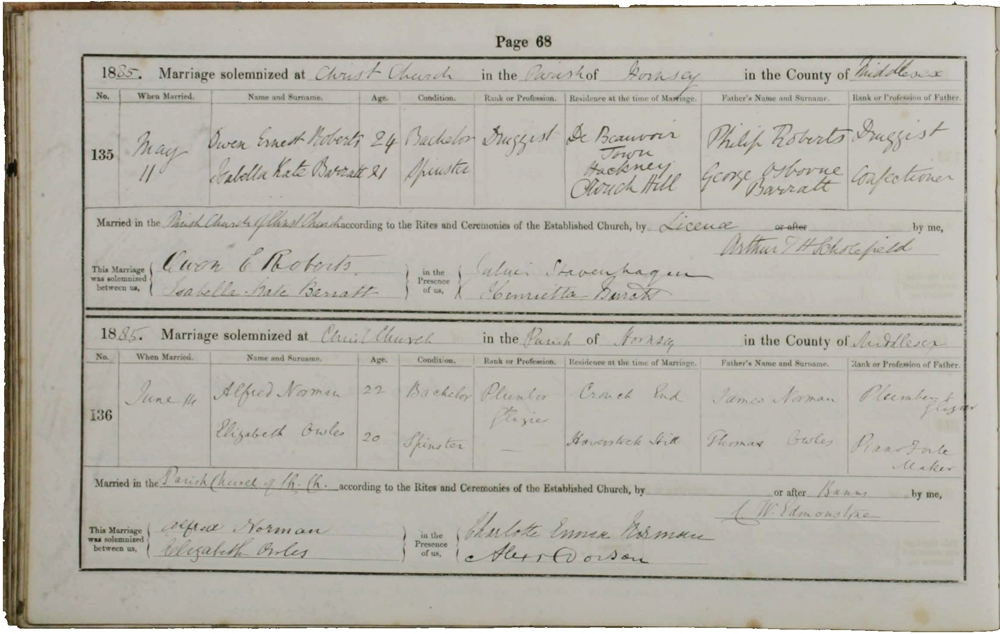 Page 68
1885. Marriage solemnized at Christ Church in the Parish of Hornsey in the County of Middlesex
No. When Married. Name and Surname. Age. Condition. Rank or Profession. Residence at the time of Marriage. Father's Name and Surname. Rank or Profession of Father.
135 May 11 Owen Ernest Roberts 24 Bachelor Druggist De Beauvoir Town Hackney Philip Roberts Druggist
Isabella Kate Barratt 21 Spinster Crouch Hill George Osborne Barratt Confectioner
Married in the Parish Church of Christ Church according to the Rites and Ceremonies of the Established Church, by Licence or after by me,
Arthur T H Scholefield
This Marriage was solemnized between us, Owen E Roberts. in the Presence of us, Stavenhagen
Isabella Kate Barratt Henrietta Barratt
1885. Marriage solemnized at Christ Church in the Parish of Hornsey in the County of Middlesex
No. When Married. Name and Surname. Age. Condition. Rank or Profession. Residence at the time of Marriage. Father's Name and Surname. Rank or Profession of Father.
136 June 14 Alfred Norman 22 Bachelor Plumber Glazier Crouch End James Norman Plumber & glazier
Elizabeth Owles 20 Spinster — Haverstock Hill Thomas Owles Piano Forte Maker
Married in the Parish Church of Ch. Ch. according to the Rites and Ceremonies of the Established Church, by or after Banns by me,
W. Edmonstone
This Marriage was solemnized between us, Alfred Norman in the Presence of us, Charlotte Emma Norman
Elizabeth Owles Dodson